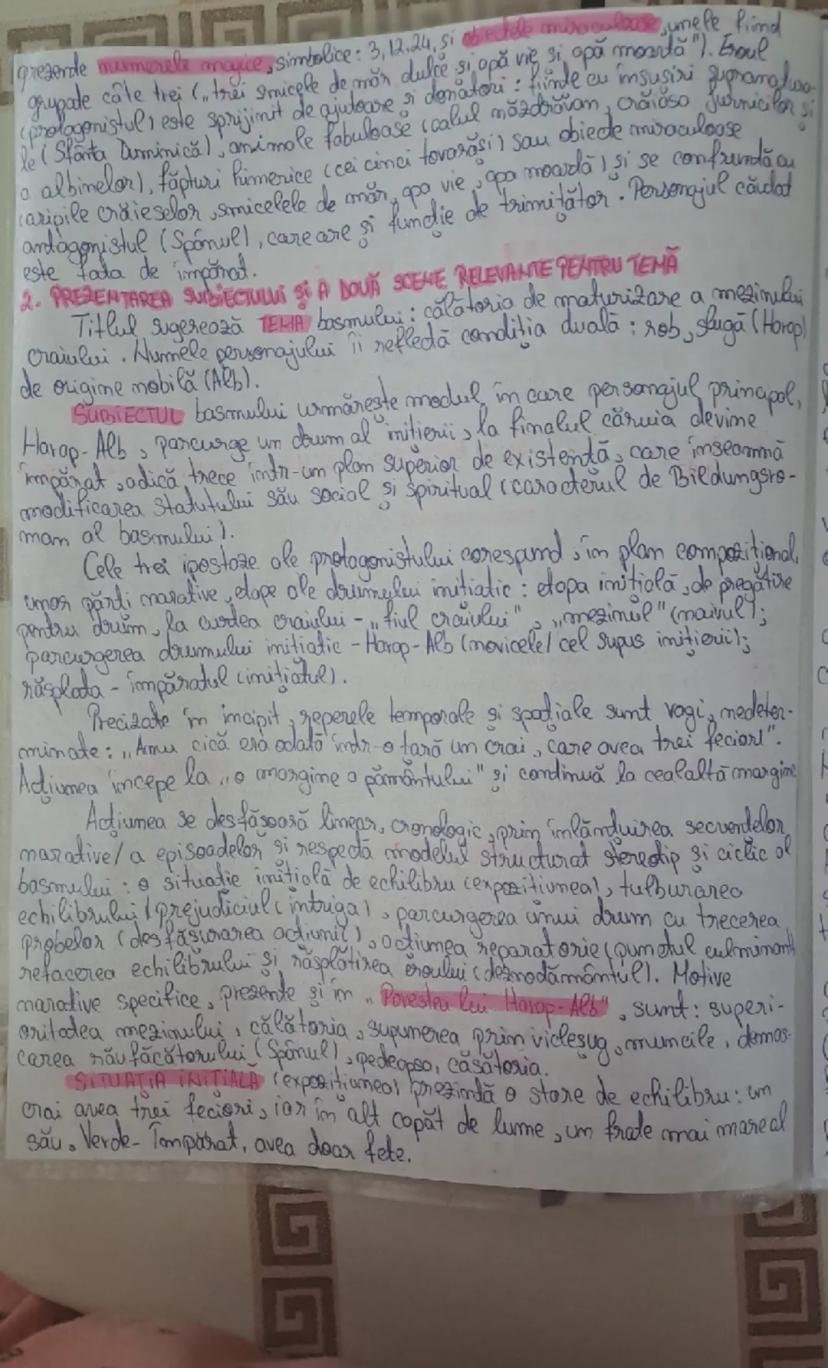 prezente numerele magice, simbolice: 3, 12, 24, și obiectele miraculoase, unele fiind
grupate câte trei („trei smicele de măr dulce și apă vie și apă moartă"). Eroul
(protagonistul) este sprijinit de ajutoare și donatori: ființe cu însușiri supranatura-
le (Sfânta Duminică), animale fabuloase (calul năzdrăvan, crăiasa furnicilor și
a albinelor), făpturi himerice (cei cinci tovarăși) sau obiecte miraculoase
(aripile crăieselor, smicelele de măr, apa vie, apa moartă) și se confruntă cu
antagonistul (Spânul), care are și funcție de trimițător. Personajul căutat
este fata de împărat.
2. PREZENTAREA SUBIECTULUI ȘI A DOUĂ SCENE RELEVANTE PENTRU TEMĂ
Titlul sugerează TEMA basmului: călătoria de maturizare a mezinului
craiului. Numele personajului îi reflectă condiția duală: rob, slugă (Harap)
de origine nobilă (Alb).
SUBIECTUL basmului urmărește modul în care personajul principal,
Harap-Alb, parcurge un drum al inițierii, la finalul căruia devine
împărat, adică trece într-un plan superior de existență, care înseamnă
modificarea statutului său social și spiritual (caracterul de Bildungsro-
man al basmului).
Cele trei ipostaze ale protagonistului corespund, în plan compozițional,
unor părți narative, etape ale drumului inițiatic: etapa inițială, de pregătire
pentru drum, la curtea craiului - „fiul craiului", „mezinul" (naivul);
parcurgerea drumului inițiatic - Harap-Alb (novicele/ cel supus inițierii);
răsplata - împăratul (inițiatul).
Precizate în incipit, reperele temporale și spațiale sunt vagi, nedeter-
minate: „Amu cică era odată într-o țară un crai, care avea trei feciori".
Acțiunea începe la „o margine a pământului" și continuă la cealaltă margine
Acțiunea se desfășoară linear, cronologic, prin înlănțuirea secvențelor
narative/ a episoadelor și respectă modelul structurat stereotip și ciclic al
basmului: o situație inițială de echilibru (expozițiunea), tulburarea
echilibrului / prejudiciul (intriga), parcurgerea unui drum cu trecerea
probelor (desfășurarea acțiunii), acțiunea reparatorie (punctul culminant)
refacerea echilibrului și răsplătirea eroului (deznodământul). Motive
narative specifice, prezente și în „Povestea lui Harap-Alb", sunt: superi-
oritatea mezinului, călătoria, supunerea prin vicleșug, muncile, demas-
carea răufăcătorului (Spânul), pedeapsa, căsătoria.
SITUAȚIA INIȚIALĂ (expozițiunea) prezintă o stare de echilibru: un
crai avea trei feciori, iar în alt capăt de lume, un frate mai mare al
său, Verde-Împărat, avea doar fete.